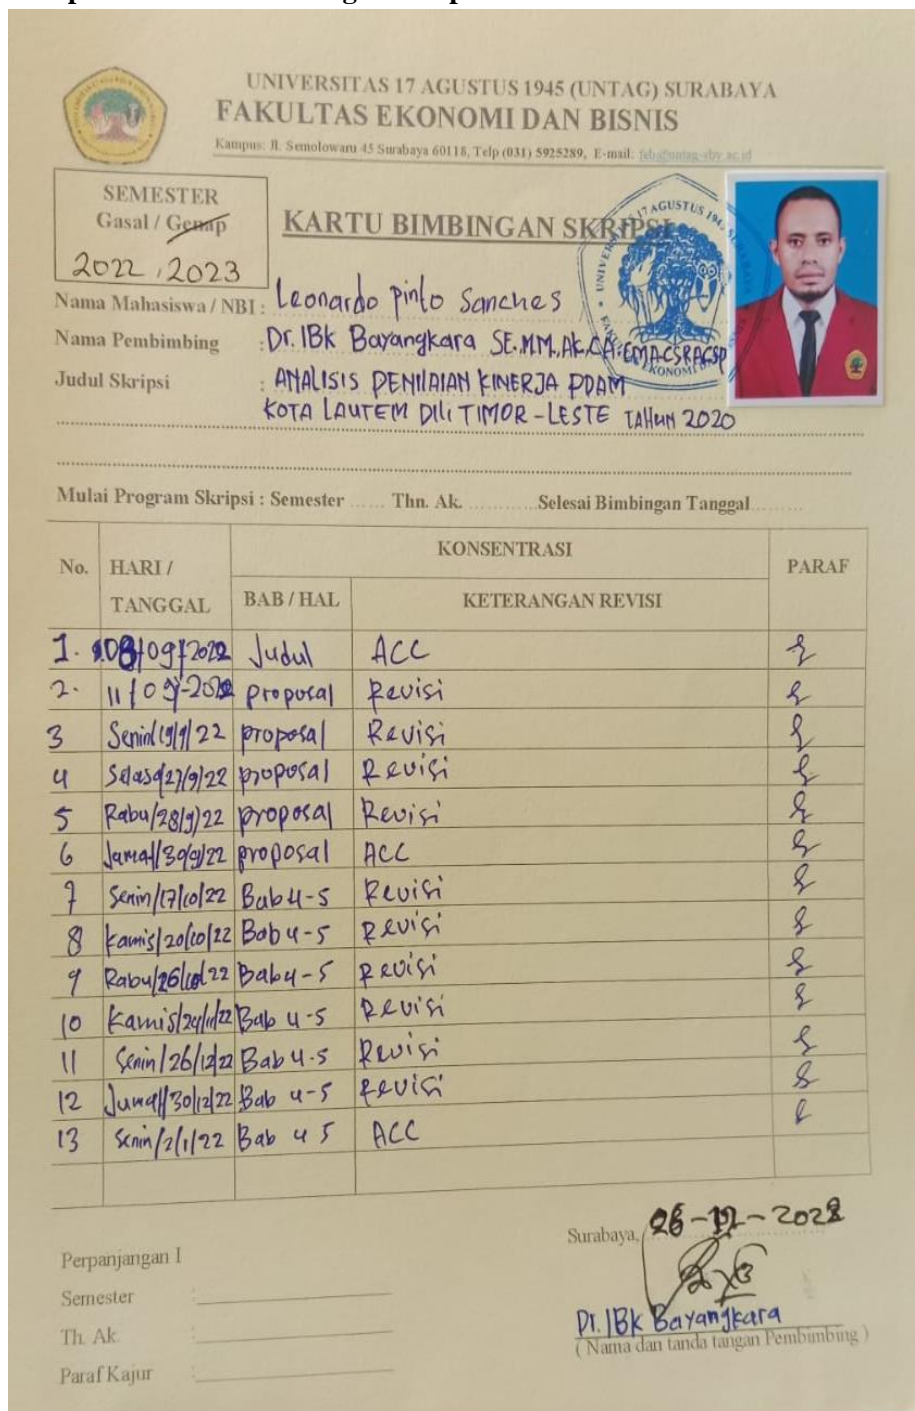 UNIVERSITAS 17 AGUSTUS 1945 (UNTAG) SURABAYA
FAKULTAS EKONOMI DAN BISNIS
Kampus: Jl. Semolowaru 45 Surabaya 60118, Telp (031) 5925289, E-mail: feb@untag-sby.ac.id
SEMESTER
Gasal / Genap
2022, 2023
KARTU BIMBINGAN SKRIPSI
Nama Mahasiswa / NBI : Leonardo Pinto Sanches
Nama Pembimbing : Dr. IBK Bayangkara SE.MM.,Ak.CA.CMA.CSRA.CSP
Judul Skripsi : ANALISIS PENILAIAN KINERJA PDAM
KOTA LAUTEM DILI TIMOR-LESTE TAHUN 2020
Mulai Program Skripsi : Semester ...... Thn. Ak. ............ Selesai Bimbingan Tanggal.........
No. HARI / TANGGAL KONSENTRASI PARAF
BAB / HAL KETERANGAN REVISI
1. 08/09/2022 Judul ACC
2. 11/09-2022 proposal Revisi
3 Senin/19/9/22 proposal Revisi
4 Selasa/27/9/22 proposal Revisi
5 Rabu/28/9/22 proposal Revisi
6 Jumat/30/9/22 proposal ACC
7 Senin/17/10/22 Bab 4-5 Revisi
8 Kamis/20/10/22 Bab 4-5 Revisi
9 Rabu/26/10/22 Bab 4-5 Revisi
10 Kamis/24/11/22 Bab 4-5 Revisi
11 Senin/26/12/22 Bab 4-5 Revisi
12 Jumat/30/12/22 Bab 4-5 Revisi
13 Senin/2/1/22 Bab 4 5 ACC
Surabaya, 26-12-2022
Perpanjangan I
Semester :
Th. Ak. :
Paraf Kajur :
Dr. IBK Bayangkara
( Nama dan tanda tangan Pembimbing )